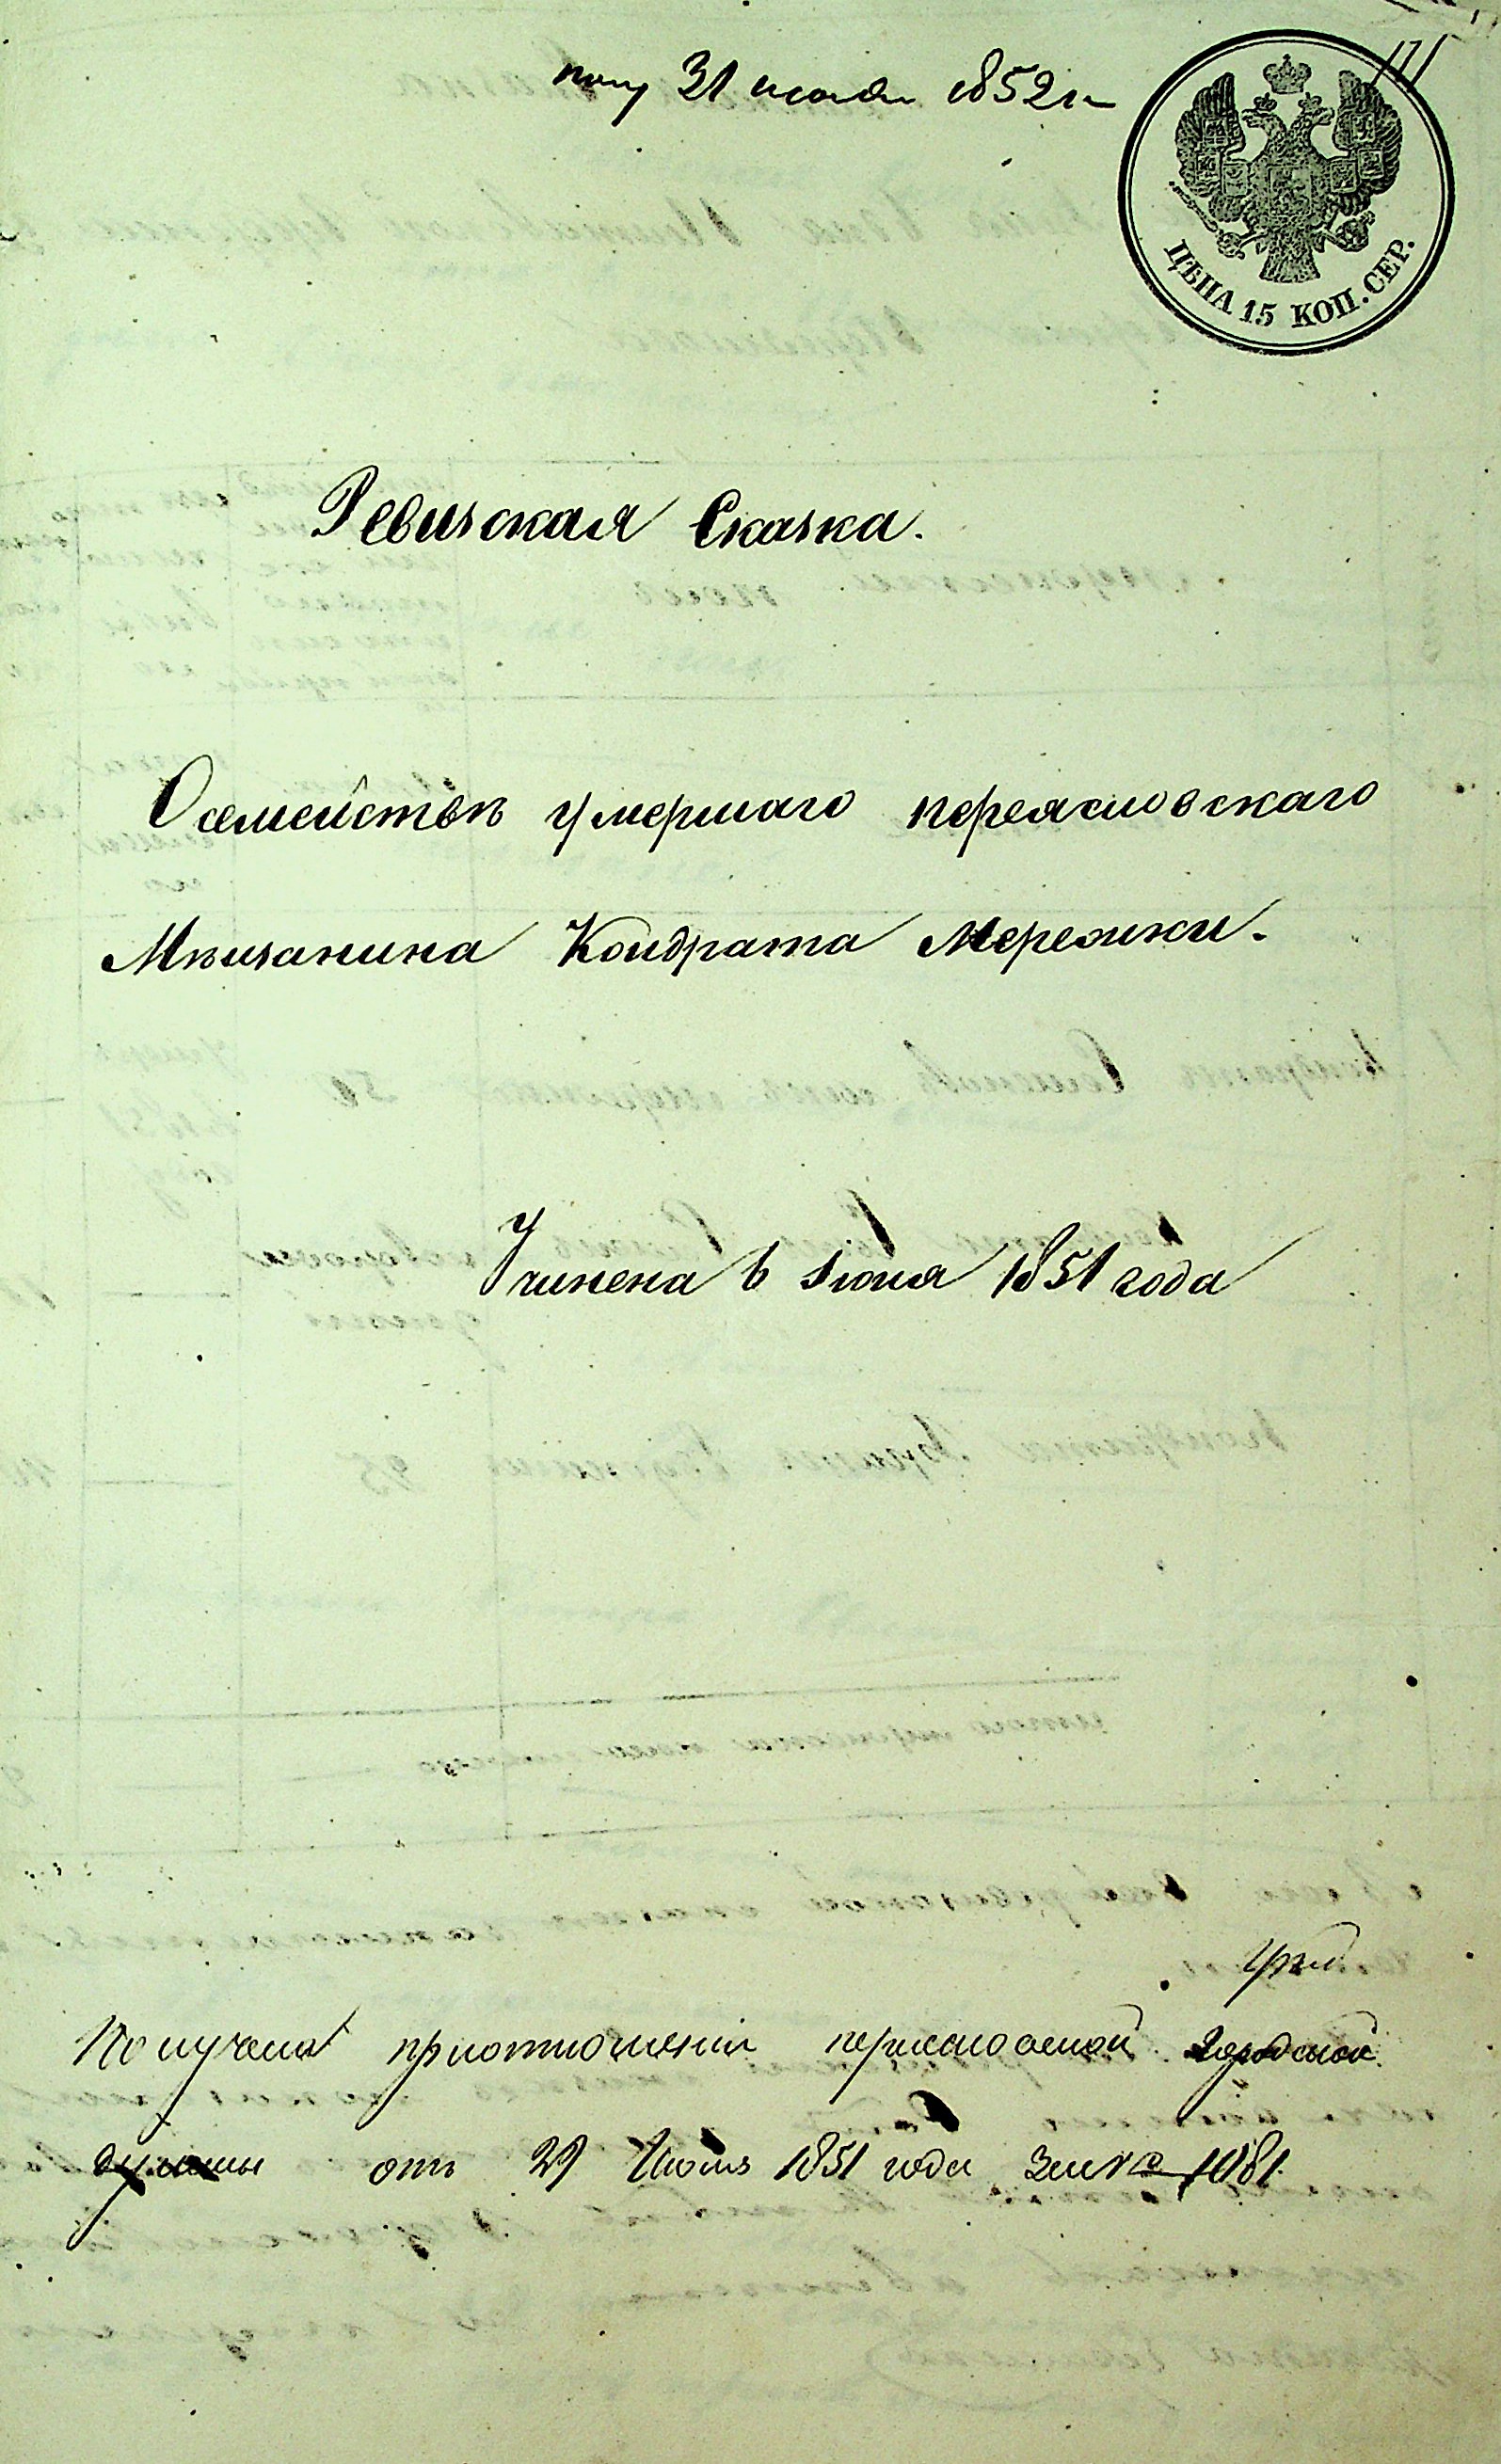 полу 31 июля 1852 г.
171
ЦѢНА 15 КОП. СЕР.
Ревизская Сказка.
О семействѣ умершаго переясловскаго
Мѣщанина Кондрата Мережки.
Учинена 6 Іюня 1851 года
Получена при отношеніи переясловской Городской
думы отъ 29 Июня 1851 года за № 1081.